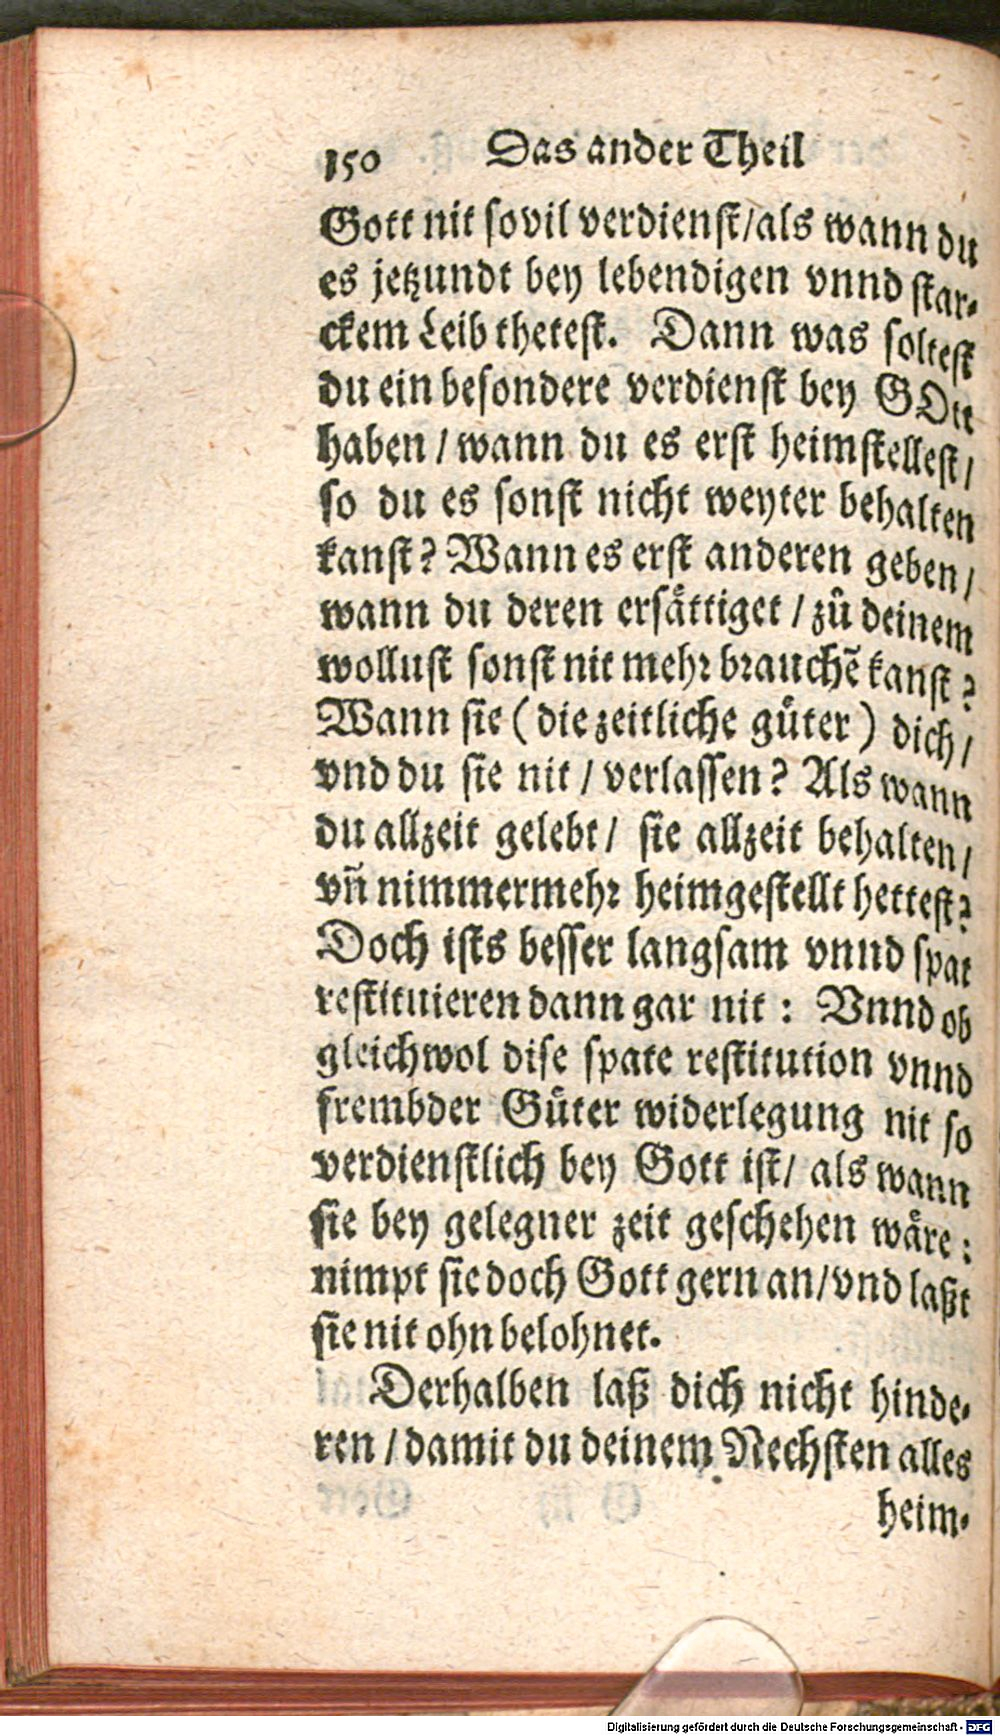 150 Das ander Theil
Gott nit sovil verdienst/als wann du
es jetzundt bey lebendigen vnnd star-
ckem Leib thetest. Dann was soltest
du ein besondere verdienst bey GOtt
haben / wann du es erst heimstellest/
so du es sonst nicht weyter behalten
kanst? Wann es erst anderen geben/
wann du deren ersåttiget / zů deinem
wollust sonst nit mehr brauchẽ kanst?
Wann sie (die zeitliche gůter) dich/
vnd du sie nit / verlassen? Als wann
du allzeit gelebt/ sie allzeit behalten/
vñ nimmermehr heimgestellt hettest?
Doch ists besser langsam vnnd spat
restituieren dann gar nit: Vnnd ob
gleichwol dise spate restitution vnnd
frembder Gůter widerlegung nit so
verdienstlich bey Gott ist/ als wann
sie bey gelegner zeit geschehen wåre:
nimpt sie doch Gott gern an/vnd laßt
sie nit ohn belohnet.
Derhalben laß dich nicht hinde-
ren / damit du deinem Nechsten alles
heim-
Digitalisierung gefördert durch die Deutsche Forschungsgemeinschaft - DFG